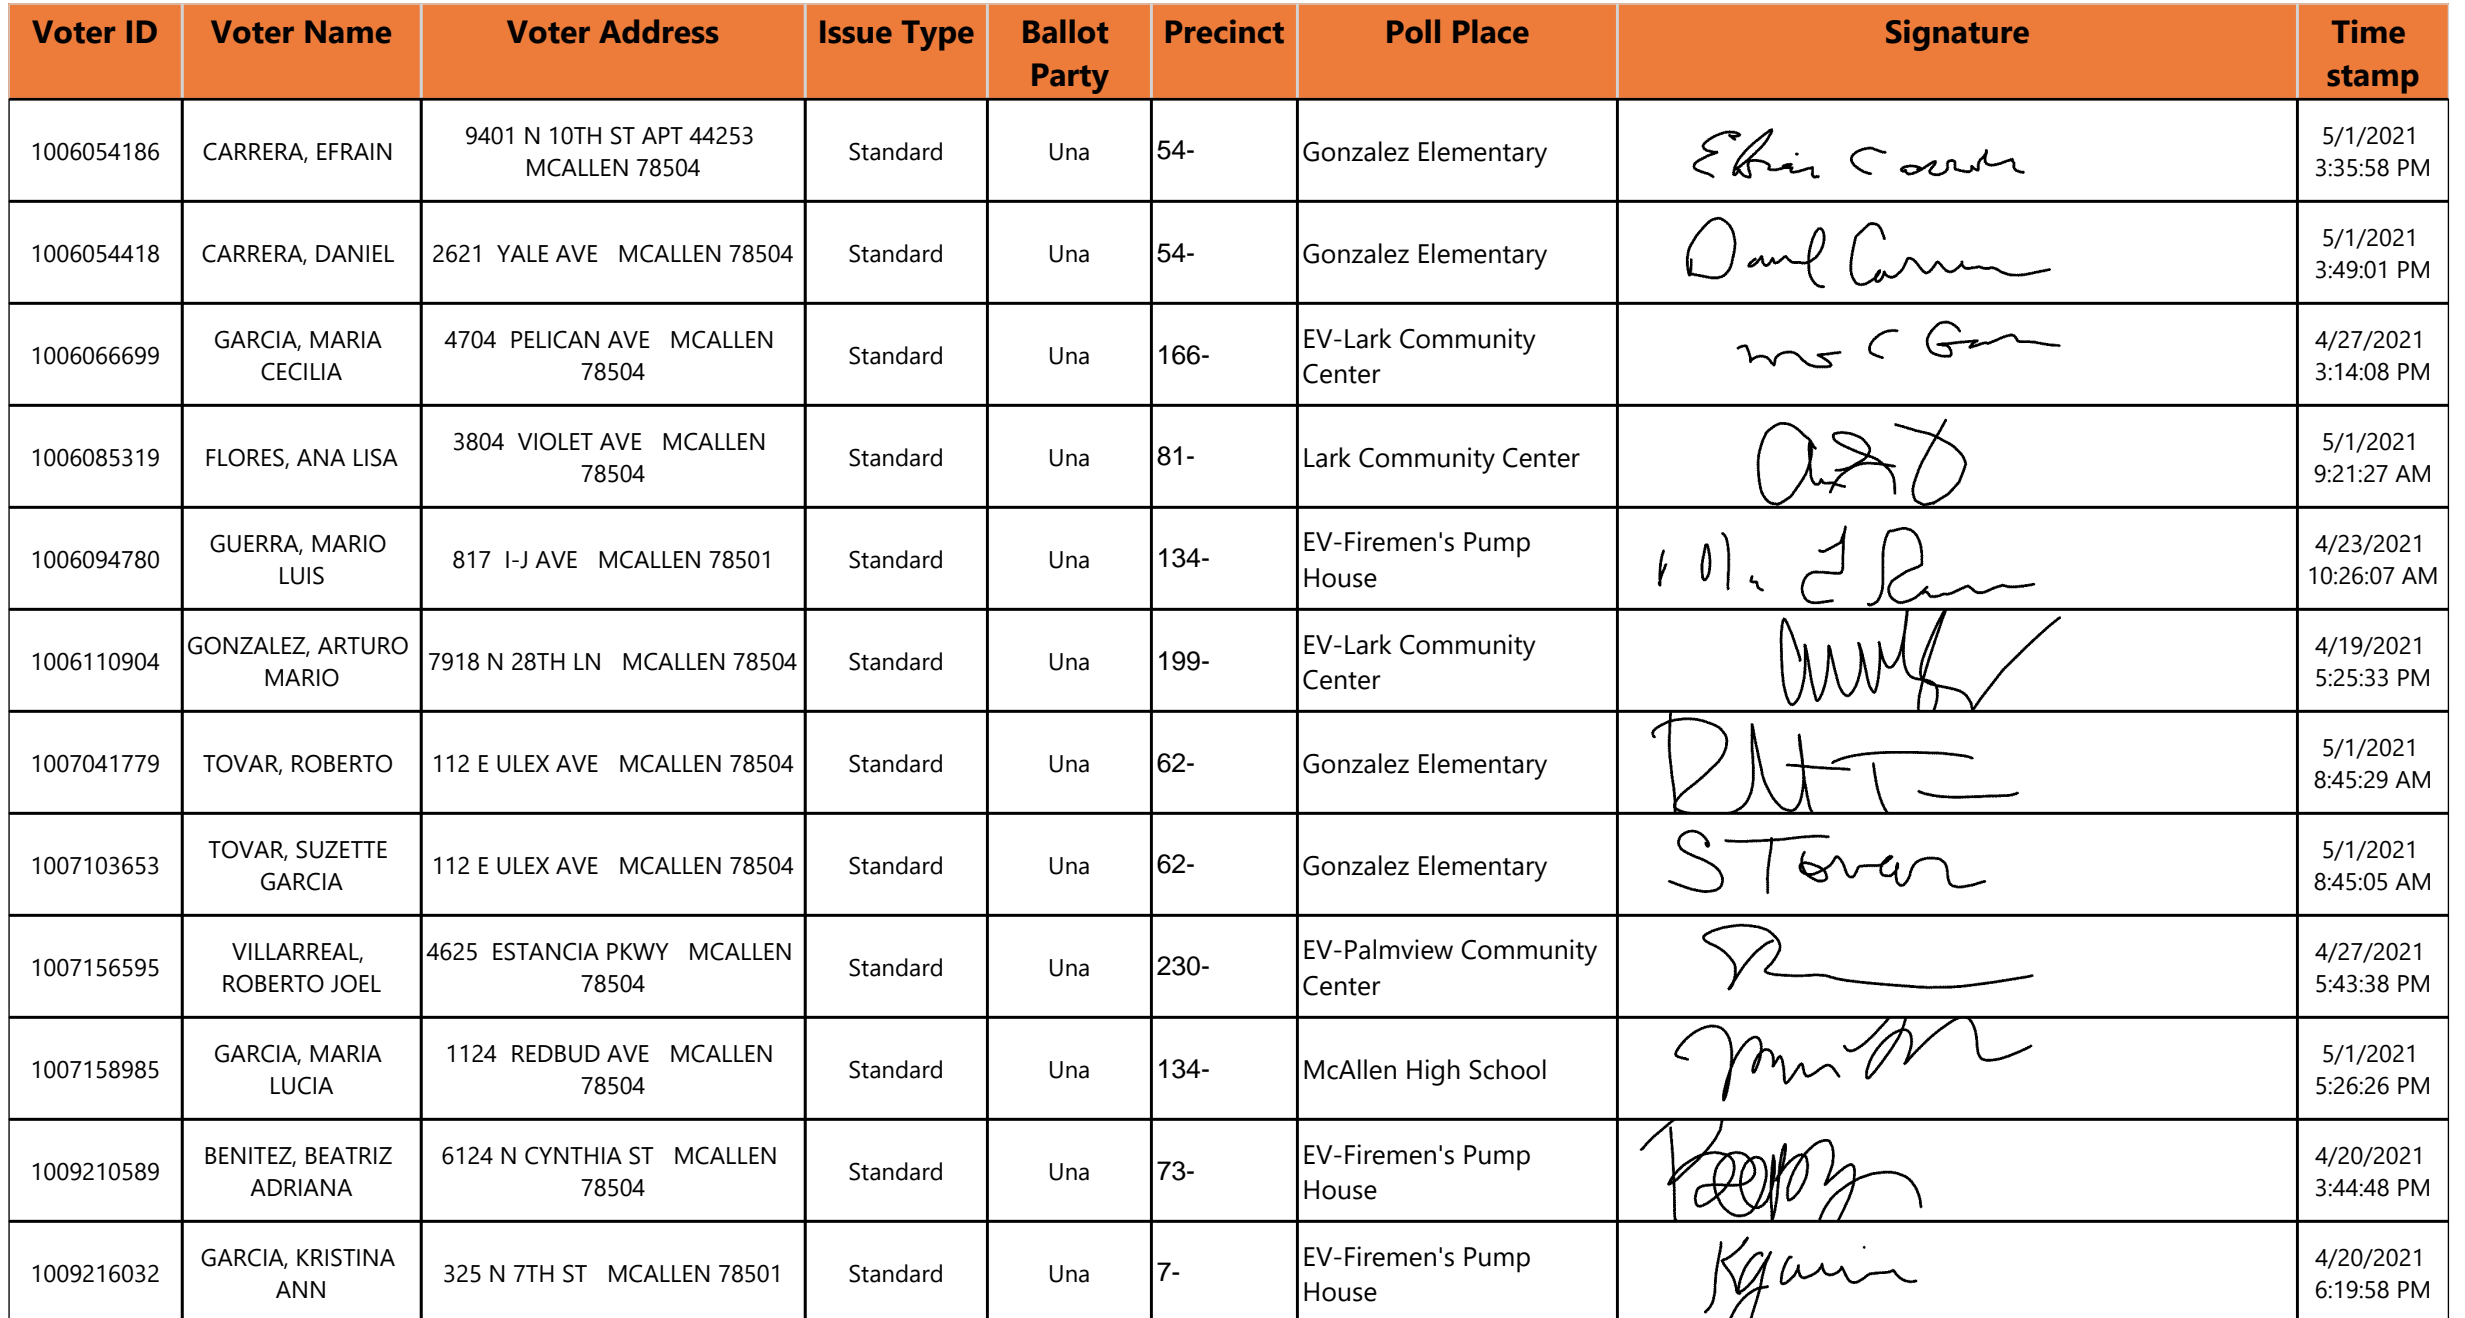 Voter ID Voter Name Voter Address Issue Type Ballot Party Precinct Poll Place Signature Time stamp
1006054186 CARRERA, EFRAIN 9401 N 10TH ST APT 44253 MCALLEN 78504 Standard Una 54- Gonzalez Elementary 5/1/2021 3:35:58 PM
1006054418 CARRERA, DANIEL 2621 YALE AVE MCALLEN 78504 Standard Una 54- Gonzalez Elementary 5/1/2021 3:49:01 PM
1006066699 GARCIA, MARIA CECILIA 4704 PELICAN AVE MCALLEN 78504 Standard Una 166- EV-Lark Community Center 4/27/2021 3:14:08 PM
1006085319 FLORES, ANA LISA 3804 VIOLET AVE MCALLEN 78504 Standard Una 81- Lark Community Center 5/1/2021 9:21:27 AM
1006094780 GUERRA, MARIO LUIS 817 I-J AVE MCALLEN 78501 Standard Una 134- EV-Firemen's Pump House 4/23/2021 10:26:07 AM
1006110904 GONZALEZ, ARTURO MARIO 7918 N 28TH LN MCALLEN 78504 Standard Una 199- EV-Lark Community Center 4/19/2021 5:25:33 PM
1007041779 TOVAR, ROBERTO 112 E ULEX AVE MCALLEN 78504 Standard Una 62- Gonzalez Elementary 5/1/2021 8:45:29 AM
1007103653 TOVAR, SUZETTE GARCIA 112 E ULEX AVE MCALLEN 78504 Standard Una 62- Gonzalez Elementary S Tovar 5/1/2021 8:45:05 AM
1007156595 VILLARREAL, ROBERTO JOEL 4625 ESTANCIA PKWY MCALLEN 78504 Standard Una 230- EV-Palmview Community Center 4/27/2021 5:43:38 PM
1007158985 GARCIA, MARIA LUCIA 1124 REDBUD AVE MCALLEN 78504 Standard Una 134- McAllen High School 5/1/2021 5:26:26 PM
1009210589 BENITEZ, BEATRIZ ADRIANA 6124 N CYNTHIA ST MCALLEN 78504 Standard Una 73- EV-Firemen's Pump House 4/20/2021 3:44:48 PM
1009216032 GARCIA, KRISTINA ANN 325 N 7TH ST MCALLEN 78501 Standard Una 7- EV-Firemen's Pump House 4/20/2021 6:19:58 PM